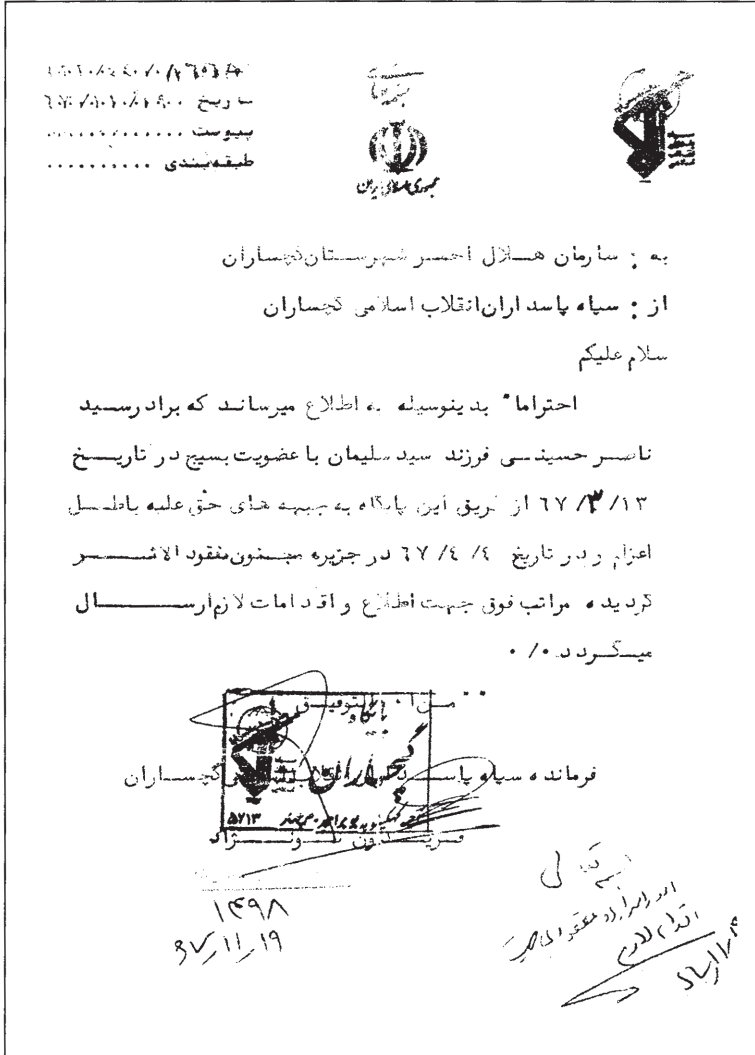 تاریخ
پیوست ............
طبقه‌بندی ..........
جمهوری اسلامی ایران
به : سازمان هلال احمر شهرستان گچساران
از : سپاه پاسداران انقلاب اسلامی گچساران
سلام علیکم
احتراما" بدینوسیله به اطلاع میرساند که برادر سید
ناصر حسینی فرزند سید سلیمان با عضویت بسیج در تاریخ
٦٧/٣/١٣ از طریق این پایگاه به جبهه های حق علیه باطل
اعزام و در تاریخ ٦٧/٤/٤ در جزیره مجنون مفقود الاثر
گردیده مراتب فوق جهت اطلاع و اقدامات لازم ارسال
میگردد ٠/٠
من ا... التوفیق
فرمانده سپاه پاسداران انقلاب اسلامی گچساران
گچساران
٥٧١٣
فریدون
١٤٩٨
اقدام لازم